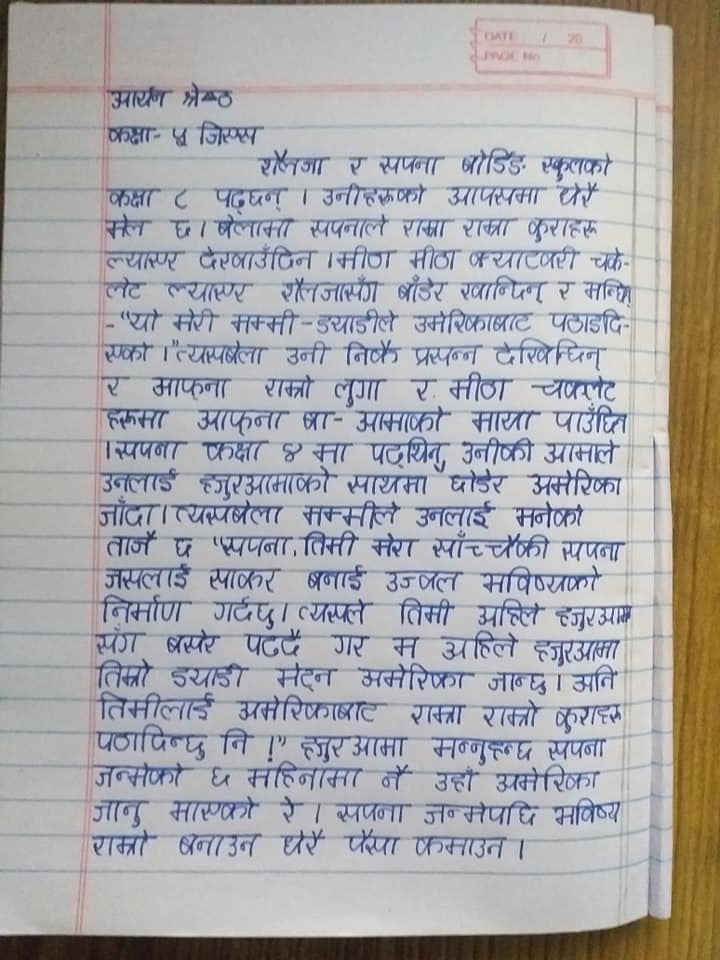 DATE: / 20
PAGE No.
आर्यन श्रेष्ठ
कक्षा- ५ जिप्स
शैलजा र सपना बोर्डिङ स्कुलको
कक्षा ८ पढ्छन् । उनीहरूको आपसमा धेरै
मेल छ । बेलामा सपनाले राम्रा राम्रा कुराहरू
ल्याएर देखाउँदिन । मीठा मीठा क्याटवरी चक-
लेट ल्याएर शैलजासँग बाँडेर खान्थिन् र भन्छिन्
-"यो मेरी मम्मी-ड्याडीले उमेरिकाबाट पठाइदि-
एको ।" त्यसबेला उनी निकै प्रसन्न देखिन्थिन्
र आफ्ना राम्रो लुगा र मीठा चक्लेट
हरूमा आफ्ना बा-आमाको माया पाउँछिन
। सपना कक्षा ४ मा पढ्थिन्, उनीकी आमाले
उनलाई हजुरआमाको साथमा छोडेर अमेरिका
जाँदा । त्यसबेला मम्मीले उनलाई भनेको
ताजै छ "सपना, तिमी मेरा साँच्चैकी सपना
जसलाई साकर बनाई उज्वल भविष्यको
निर्माण गर्दछु । त्यसले तिमी अहिले हजुरआमा
सँग बसेर पढ्दै गर म अहिले हजुरआमा
तिम्रो ड्याडी भेट्न अमेरिका जान्छु । अनि
तिमीलाई अमेरिकाबाट राम्रा राम्रो कुराहरू
पठादिन्छु नि !" हजुरआमा भन्नुहुन्छ सपना
जन्मेको छ महिनामा नै उहाँ अमेरिका
जानु भाएको रे । सपना जन्मेपछि भविष्य
राम्रो बनाउन धेरै पैसा कमाउन ।